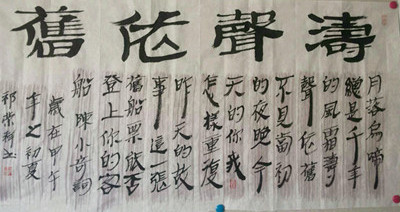 濤聲依舊
月落烏啼
總是千年
的風霜濤
聲依舊
不見當初
的夜晚今
天的你我
怎樣重復
昨天的故
事這一張
舊船票能否
登上你的客
船陳小奇詞
歲在甲午
年之初夏